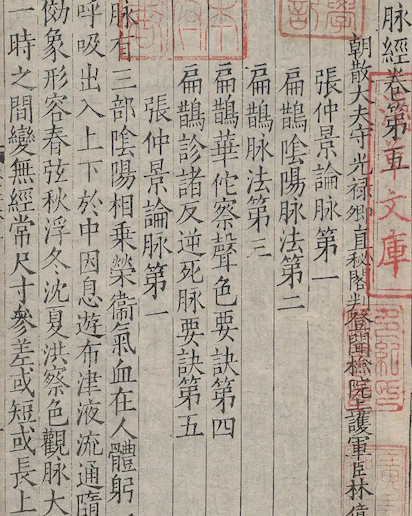 脈經卷第五
朝散大夫守光禄卿直秘閣判登聞檢院上護軍臣林億
張仲景論脈第一
扁鵲陰陽脈法第二
扁鵲脈法第三
扁鵲華佗察聲色要訣第四
扁鵲診諸反逆死脈要訣第五
張仲景論脈第一
脈有三部陰陽相乘榮衛氣血在人體躬
呼吸出入上下於中因息遊布津液流通隨
効象形容春弦秋浮冬沈夏洪察色觀脈大
一時之間變無經常尺寸參差或短或長上
文庫